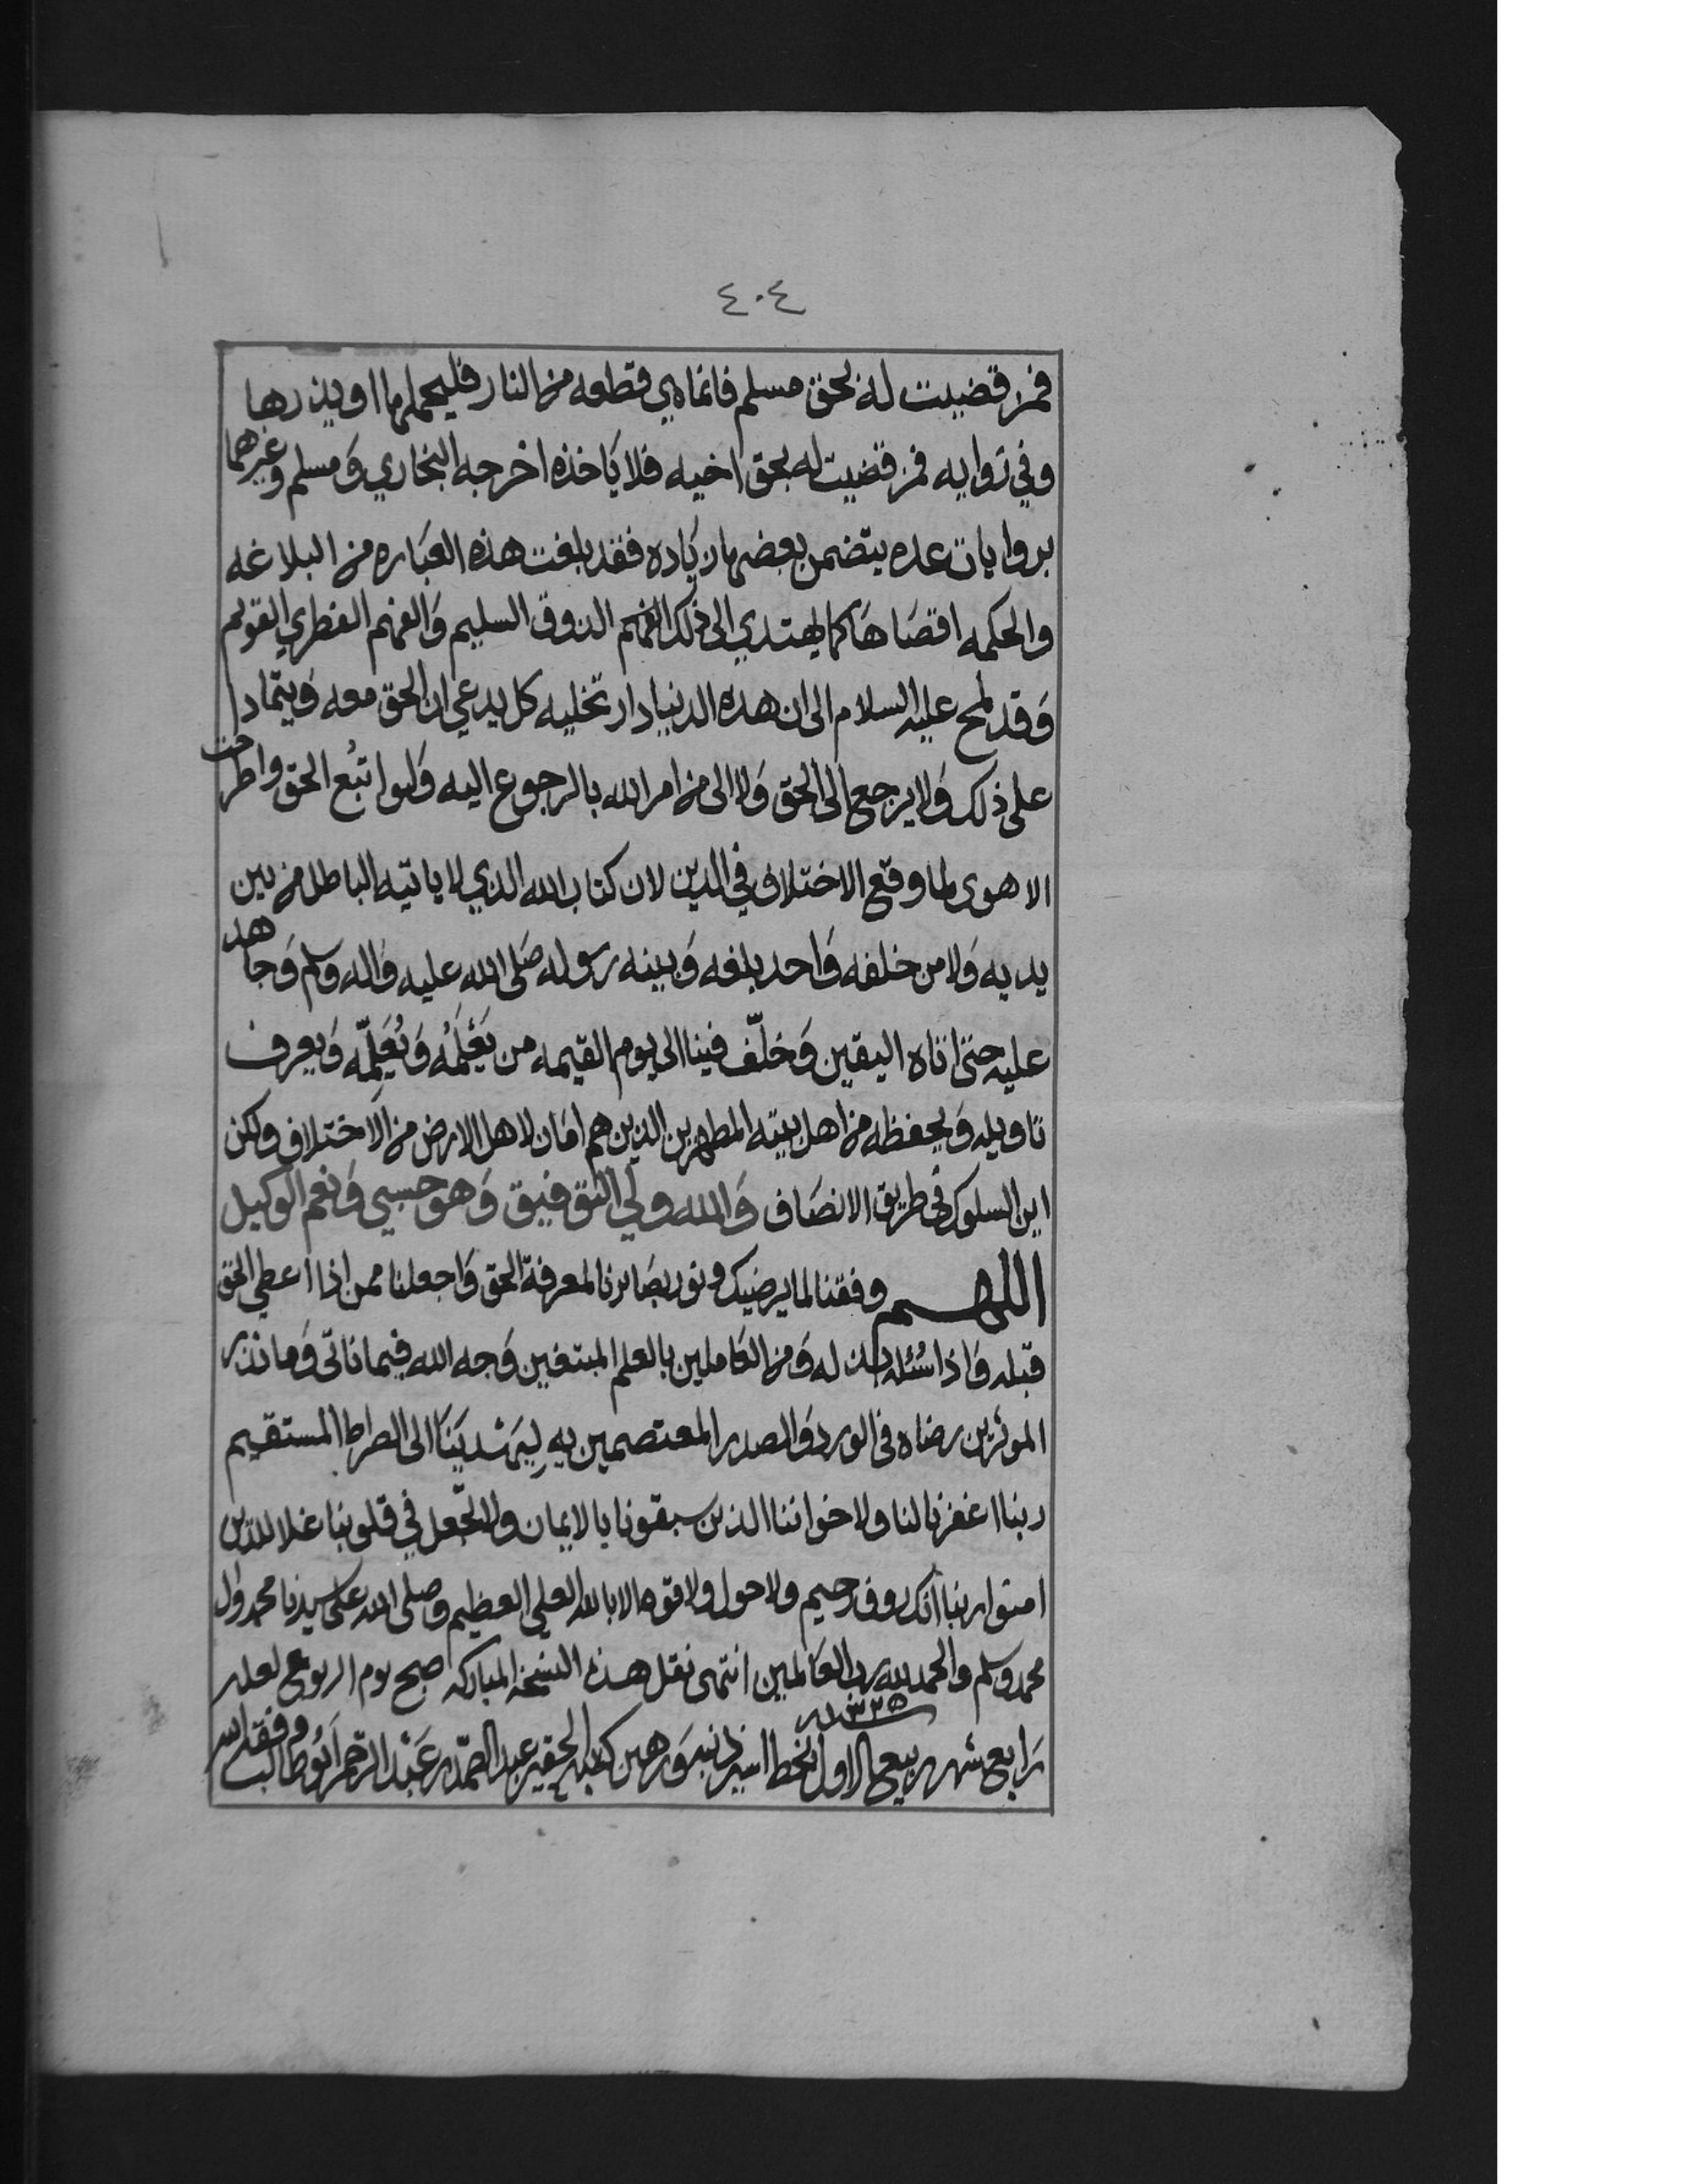 ٤٠٤
فمن قضيت له بحق مسلم فانما هي قطعه من النار فليحملها او يذرها
وفي روايه فمن قضيت له بحق اخيه فلا ياخذه اخرجه البخاري وَمسلم وغيرهما
بروايات عده يتضمن بعضها زيَاده فقد بلغت هذه العبَاره من البلاغه
والحكمه اقصَاهَا كما يهتدي الى ذلك الفهم الذوق السليم وَالفهم الفطري القويم
وَقد لمح عليه السلام الى ان هذه الدنيا دار تخليه كل يدعي ان الحق معه وَيتمادا
على ذلك وَلا يرجع الى الحق وَلا الى من امر الله بالرجوع اليه وَلو اتبُع الحق واطرحت
الاهوى لما وقع الاختلاف في الدين لان كتاب الله الذي لا ياتيه الباطل من بين
يديه وَلا من خلفه وَاحد بلغه وَبينه رسوله صَلى الله عليه وَاله وسلم وَجاهد
عليه حتى اتاه اليقين وَخلّف فينا الى يوم القيمه من يَعْلَمُه وَيُعَلِّمه وَيعرف
تاويله وَيحفظه من اهل بيته المطهرين الذين هم امَان لاهل الارض من الاختلاف ولكن
اين السلوك في طريق الانصَاف وَالله ولي التوفيق وَهو حسبي وَنعم الوكيل
اللهم وفقنا لما يرضيك ونور بصَائرنا لمعرفة الحق وَاجعلنا ممن اذا اعطي الحق
قبله وَاذا سُئله بذله وَمن العَاملين بالعلم المبتغين وَجه الله فيما ناتي وَما نذر
الموثرين رضاه في الورد وَالصدر المعتصمين به لِيَرشديَنَا الى الصراط المستقيم
ربنا اغفرنا لنا ولاخواننا الذين سبقونا بالايمان ولا تجعل في قلوبنا غلا للذين
امنوا ربنا انك روف رحيم ولا حول ولا قوه الا بالله العلي العظيم وصلى الله على سيدنا محمد وال
محمد وسلم والحمد لله رب العَالمين انتهى نقل هذه النسخة المباركه صبح يوم الربوع لعله
١٣٣٥
رَابع شهر ربيع الاول بخط اسير ذنبه وَرهين كسبه الحقير عبد الصّمد عَبْد الرّحمن ابُو طالب وفقه الله